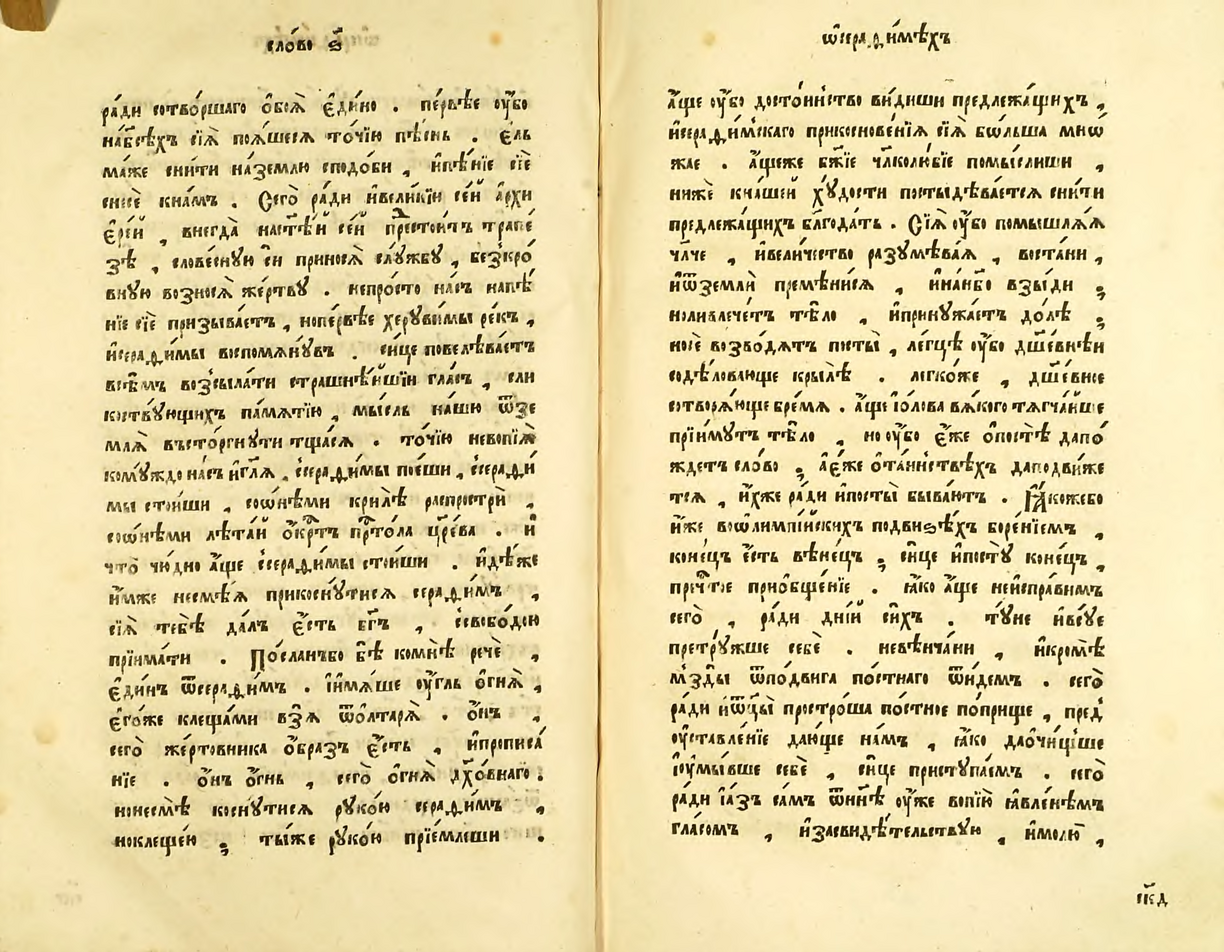 сло́во ѕ҃
ра́ди сотво́ршаго ѻ҆боѧ̀ є҆ди́но . пе́рвѣе ᲂу҆́бо
на́б̾сѣхъ сїѧ̀ поѧ́шесѧ то́чїю пѣ́снь . є҆ль
ма́же сни́ти на́землю сподо́би , и҆пѣ́нїе сїѐ
снесѐ кна́мъ . Сего̀ ра́ди и҆вели́кїи се́й а҆рхи
є҆ре́й , внегда̀ наст҃ѣ́й се́й предстои́тъ трапе́
зѣ , слове́сную сѝ приносѧ̀ слу́жбꙋ , безкро́
вную возносѧ̀ же́ртвꙋ . непро́сто на́съ напѣ́
нїе сїѐ призыва́етъ , нопе́рвѣе херꙋви́мы ре́къ ,
и҆сераѳи́мы воспомѧнꙋ́въ . си́це повелѣва́етъ
всѣ́мъ возсыла́ти страшнѣ́йшїи гла́съ , сли
ко́ствꙋющихъ па́мѧтїю , мы́сль на́шꙋ ѿзе
млѧ̀ въсто́ргнꙋти тща́сѧ . то́чїю невопїѧ̀
комꙋ́ждо на́съ и҆гл҃ѧ , ссераѳи́мы пое́ши , ссераѳи́
мы стои́ши , сѻ҆нѣ́ми крилѣ̀ распрострѝ ,
сѻ҆нѣ́ми лѣта́й ѻ҆́крⷭ҇тъ прⷭ҇то́ла цр҃е́ва . и҆
что̀ чю́дно а҆́ще ссераѳи́мы стои́ши . и҆дѣ́же
и҆́мже несмѣ́ѧ прикоснꙋ́тисѧ сераѳи́мъ ,
сїѧ̀ тебѣ̀ да́лъ є҆́сть бг҃ъ , ссвобо́дою
прїима́ти . По́сланъбо бѣ̀ комнѣ̀ речѐ ,
є҆ди́нъ ѿсераѳи́мъ . і҆имѧ́ше ᲂу҆́гль ѻ҆́гнѧ ,
є҆го́же клеща́ми взѧ̀ ѿѻлтарѧ̀ . ѻ҆́нъ ,
сего̀ же́ртовника ѻ҆́бразъ є҆́сть , и҆прописа́
нїе . ѻ҆́нъ ѻ҆́гнь , сего̀ ѻ҆гнѧ̀ дх҃о́внаго .
нонесмѣ̀ коснꙋ́тисѧ рꙋко́ю сераѳи́мъ ,
ноклеще́ю ; ты́же рꙋко́ю прїе́млеши .
ѡ҆сераѳи́мѣхъ
а҆́ще ᲂу҆́бо досто́инство ви́диши предлежа́щихъ ,
и҆сераѳи́мскаго прикоснове́нїѧ сїѧ̀ бѡ́льша мнѡ
жае . а҆́щеже бж҃їе чл҃колю́бїе помы́слиши ,
нижѐ кна́шей хꙋ́дости постыдѣва́етсѧ сни́ти
предлежа́щихъ блг҃ода́ть . Сїѧ̀ ᲂу҆́бо помышлѧ́ѧ
чл҃че , и҆вели́чество разꙋмѣва́ѧ , воста́ни ,
и҆ѿземлѝ премѣни́сѧ , и҆на́нбо взы́ди ;
ноливлече́тъ тѣ́ло , и҆принꙋжа́етъ до́лѣ ;
носѐ возво́дѧтъ посты̀ , ле́гцѣ ᲂу҆́бо дш҃е́внѣи
содѣ́ловающе крылѣ̀ . ле́гкоже , дш҃е́вное
сотворѧ́юще бре́мѧ . а҆́ще і҆ѻ́лова всѧ́кого тѧгча́йше
прїи́мꙋтъ тѣ́ло , но ᲂу҆́бо є҆́же ѻ҆постѣ̀ дапо́
ждетъ сло́во ; а҆є҆́же ѻ҆та́инствѣхъ даподви́же
тсѧ , и҆́хже ра́ди и҆посты̀ быва́ютъ . Ꙗ҆́кожебо
и҆́же воѡлимпі́йскихъ по́двиѕѣхъ боре́нїемъ ,
коне́цъ є҆́сть вѣне́цъ ; си́це и҆постꙋ̀ коне́цъ ,
прчⷭ҇тое приѻбще́нїе . ꙗ҆́ко а҆́ще неисправи́мъ
сего̀ , ра́ди дні́й си́хъ . тꙋ́не и҆всꙋ́е
претрꙋ́жше себѐ . невѣнча́ни , и҆кромѣ̀
мзды̀ ѿпо́двига по́стнаго ѿи́демъ . сего̀
ра́ди и҆ѿц҃ы̀ простро́ша по́стное по́прище , пред̾
ᲂу҆ставле́нїе даю́ще на́мъ , ꙗ҆́ко даѡчи́щше
і҆ᲂу҆мы́вше себѐ , си́це пристꙋпа́емъ . сего̀
ра́ди і҆а́зъ са́мъ ѿнн҃ѣ ᲂу҆жѐ вопїю̀ ꙗ҆вле́нѣмъ
гла́сомъ , и҆засвидѣ́тельствꙋю , и҆молю̀ ,
ск҃д